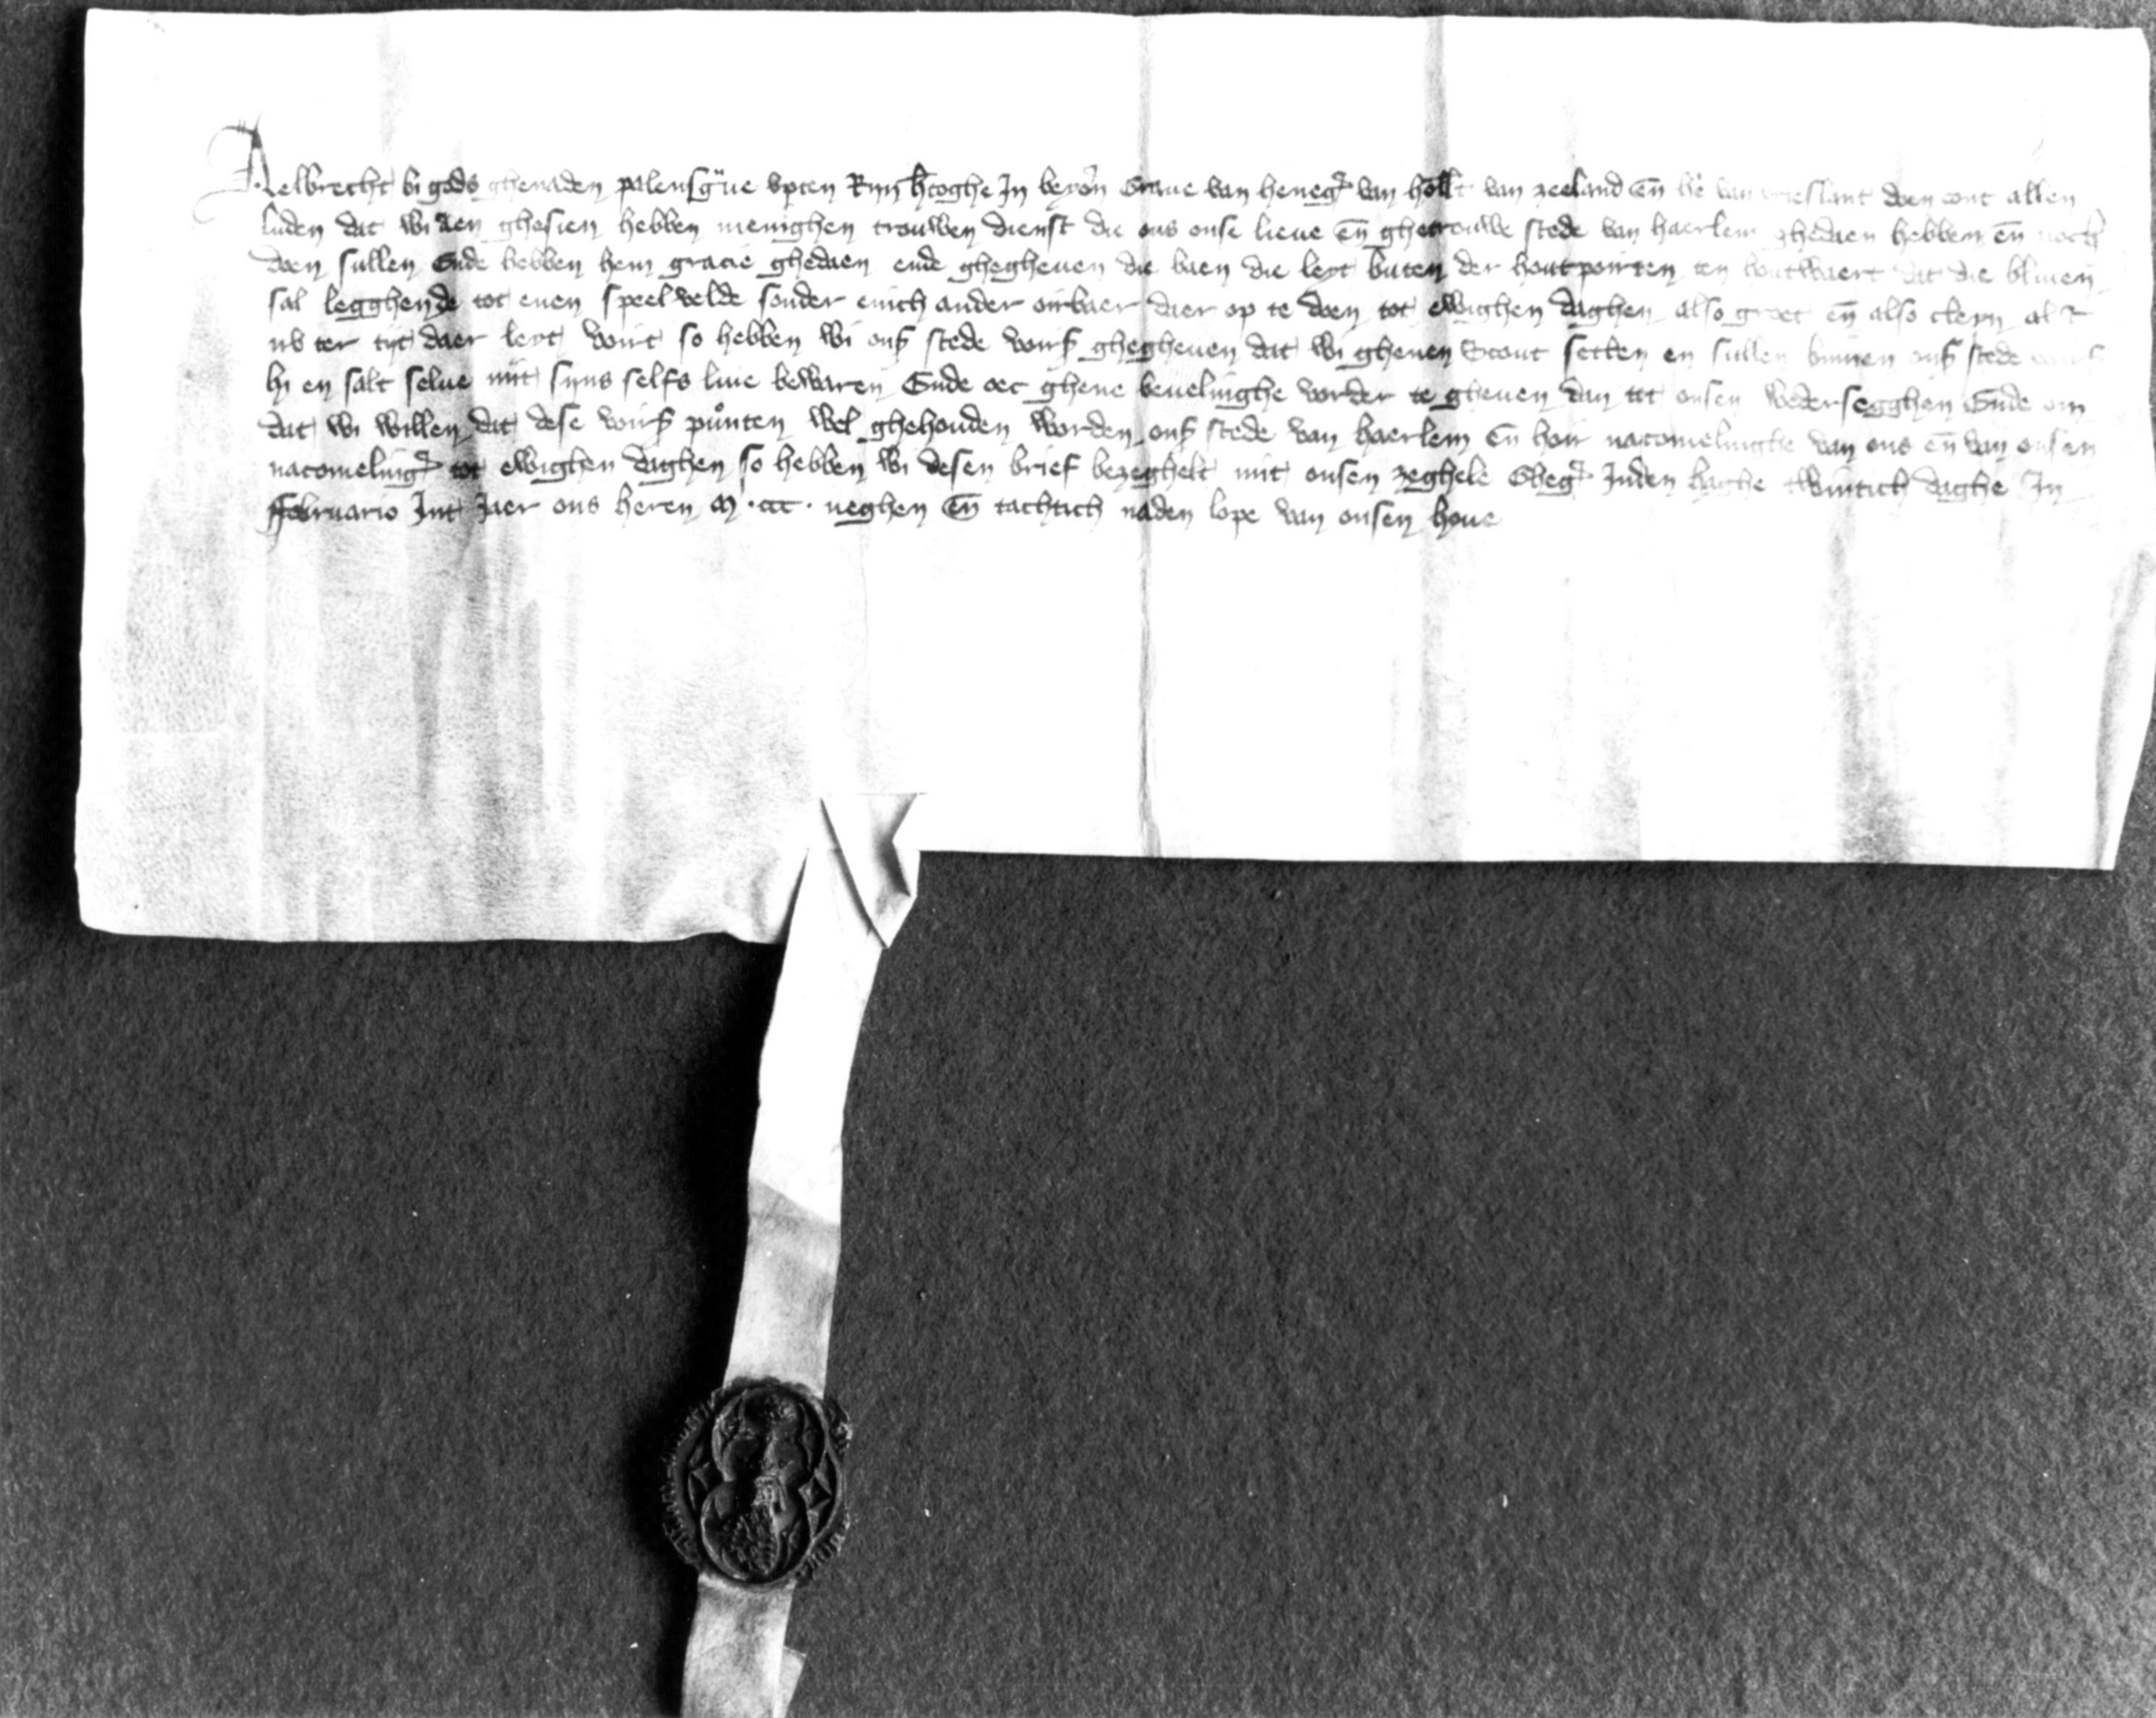 Aelbrecht bi gods ghenaden palensgue upten Ryn htoghe In beyern Graue van heneg van hollt van zeeland en he van vrieslant doen cont allen
luden dat wi aen ghesien hebben menighen trouwen dienst die ons onse lieue en ghetrouwe stede van haerlem ghedaen hebben en noch
doen sullen Ende hebben hem gracie ghedaen ende ghegheuen die baen die leyt buten der houtpoirten ten houtwaert dat die bliuen
sal legghende tot enen speelvelde sonder enich ander oirbaer daer op te doen tot ewighen daghen also groet en also cleyn als
nv ter tyt daer leyt voirt so hebben wi ons stede voirs ghegheuen dat wi ghenen Scout setten en sullen binnen ons stede voirs
hi en salt selue mit syns selfs liue bewaren Ende oec ghene beuelinghe vorder te gheuen dan tot onsen wedersegghen Ende om
dat wi willen dat dese voirs punten wel ghehouden worden ons stede van haerlem en hoir nacomelinghe van ons en van onsen
nacomeling tot ewighen daghen so hebben wi desen brief bezeghelt mit onsen zeghele Gheg Inden haghe twintich daghe In
ffebruario Int Jaer ons heren M . ccc . neghen en tachtich naden lope van onsen houe